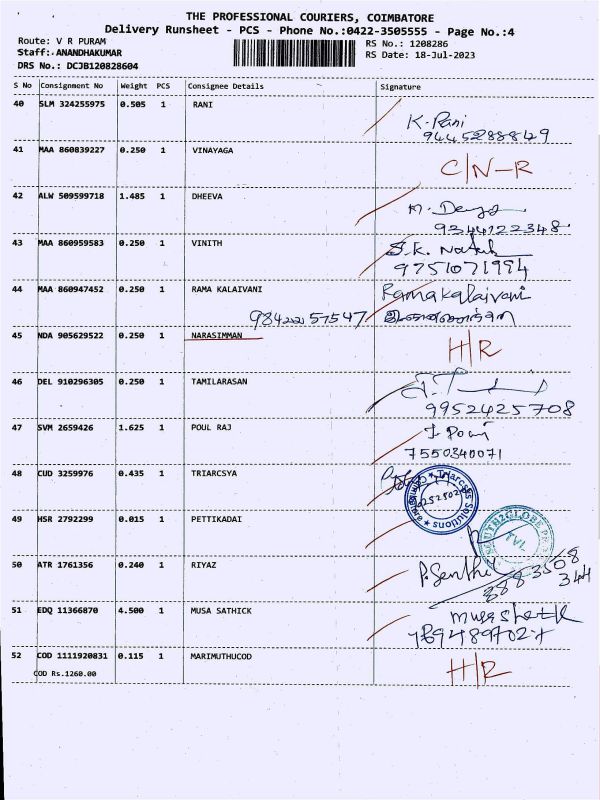 THE PROFESSIONAL COURIERS, COIMBATORE
Delivery Runsheet - PCS - Phone No.:0422-3505555 - Page No.:4
Route: V R PURAM
RS No.: 1208286
Staff: ANANDHAKUMAR
RS Date: 18-Jul-2023
DRS No.: DCJB120828604
S No Consignment No Weight PCS Consignee Details Signature
40 SLM 324255975 0.505 1 RANI
K. Rani
9445288849
41 MAA 860839227 0.250 1 VINAYAGA
C/N-R
42 ALW 509599718 1.485 1 DHEEVA
9344122348
43 MAA 860959583 0.250 1 VINITH
S.K.
9751071994
44 MAA 860947452 0.250 1 RAMA KALAIVANI Ramakalaivani
9842257547
45 NDA 905629522 0.250 1 NARASIMMAN
H/R
46 DEL 910296305 0.250 1 TAMILARASAN
9952425708
47 SVM 2659426 1.625 1 POUL RAJ
7550340071
48 CUD 3259976 0.435 1 TRIARCSYA
Triarcsys Solutions
49 HSR 2792299 0.015 1 PETTIKADAI
TVL
50 ATR 1761356 0.240 1 RIYAZ
P. Senthi
51 EDQ 11366870 4.500 1 MUSA SATHICK
52 COD 1111920831 0.115 1 MARIMUTHUCOD
H/R
COD Rs.1260.00